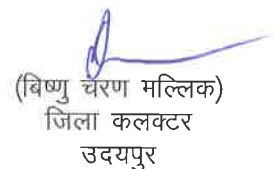 (बिष्णु चरण मल्लिक)
जिला कलक्टर
उदयपुर